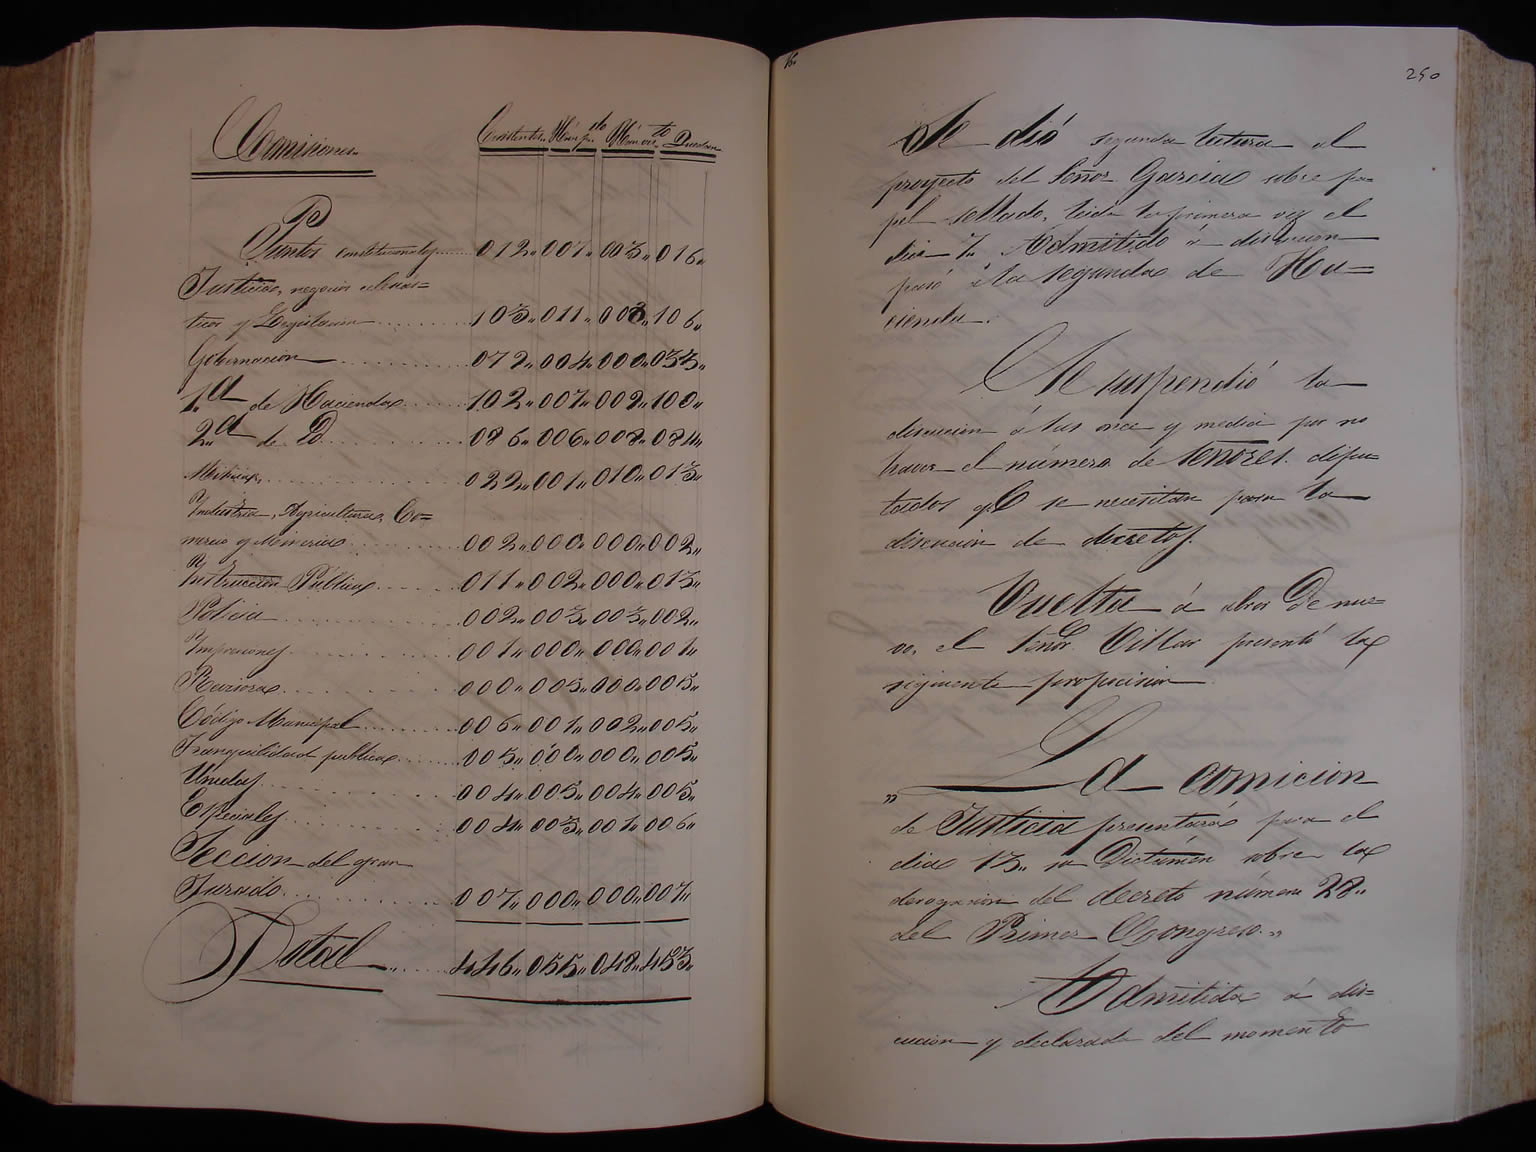 Comisiones. Existentes. Quedan
Puntos constitucionales 012.. 007.. 003.. 016..
Justicia, negocios eclesias=
ticos y Legislacion 103.. 011.. 008.. 106..
Gobernacion 072.. 004.. 000..
1.a de Hacienda 102.. 007.. 009.. 100..
2.a de Yd. 086.. 006.. 008.. 084..
Milicias 022.. 001.. 010.. 013..
Industria, Agricultura, Co=
mercio y Mineria 002.. 000.. 000.. 002..
Instruccion Publica 011.. 002.. 000.. 013..
Policia 002.. 003.. 003.. 002..
Impresiones 001.. 000.. 000.. 001..
000.. 005.. 000.. 005..
Código Municipal 006.. 001.. 002.. 005..
Tranquilidad publica 005.. 000.. 000.. 005..
Unidas 004.. 005.. 004.. 005..
Especiales 004.. 003.. 001.. 006..
Seccion del gran
Jurado 007.. 000.. 000.. 007..
Total 446.. 055.. 048.. 453..
250
Se dió segunda lectura al
proyecto del Señor Garcia sobre pa=
pel sellado, leido la primera vez el
dia 7. Admitido á discucion
pasó á la segunda de Ha=
cienda.
Se suspendió la
discucion á las once y media por no
haver el número de señores dipu=
tados qe se necesitan para la
discucion de decretos.
Vuelta á abrir De nue=
vo, el Señor Villar presentó la
siguiente proposicion
"La comicion
de Justicia presentará para el
dia 13.. su Dictámen sobre la
derogacion del decreto número 28..
del Primer Congreso."
Admitida á dis=
cucion y declarada del momento